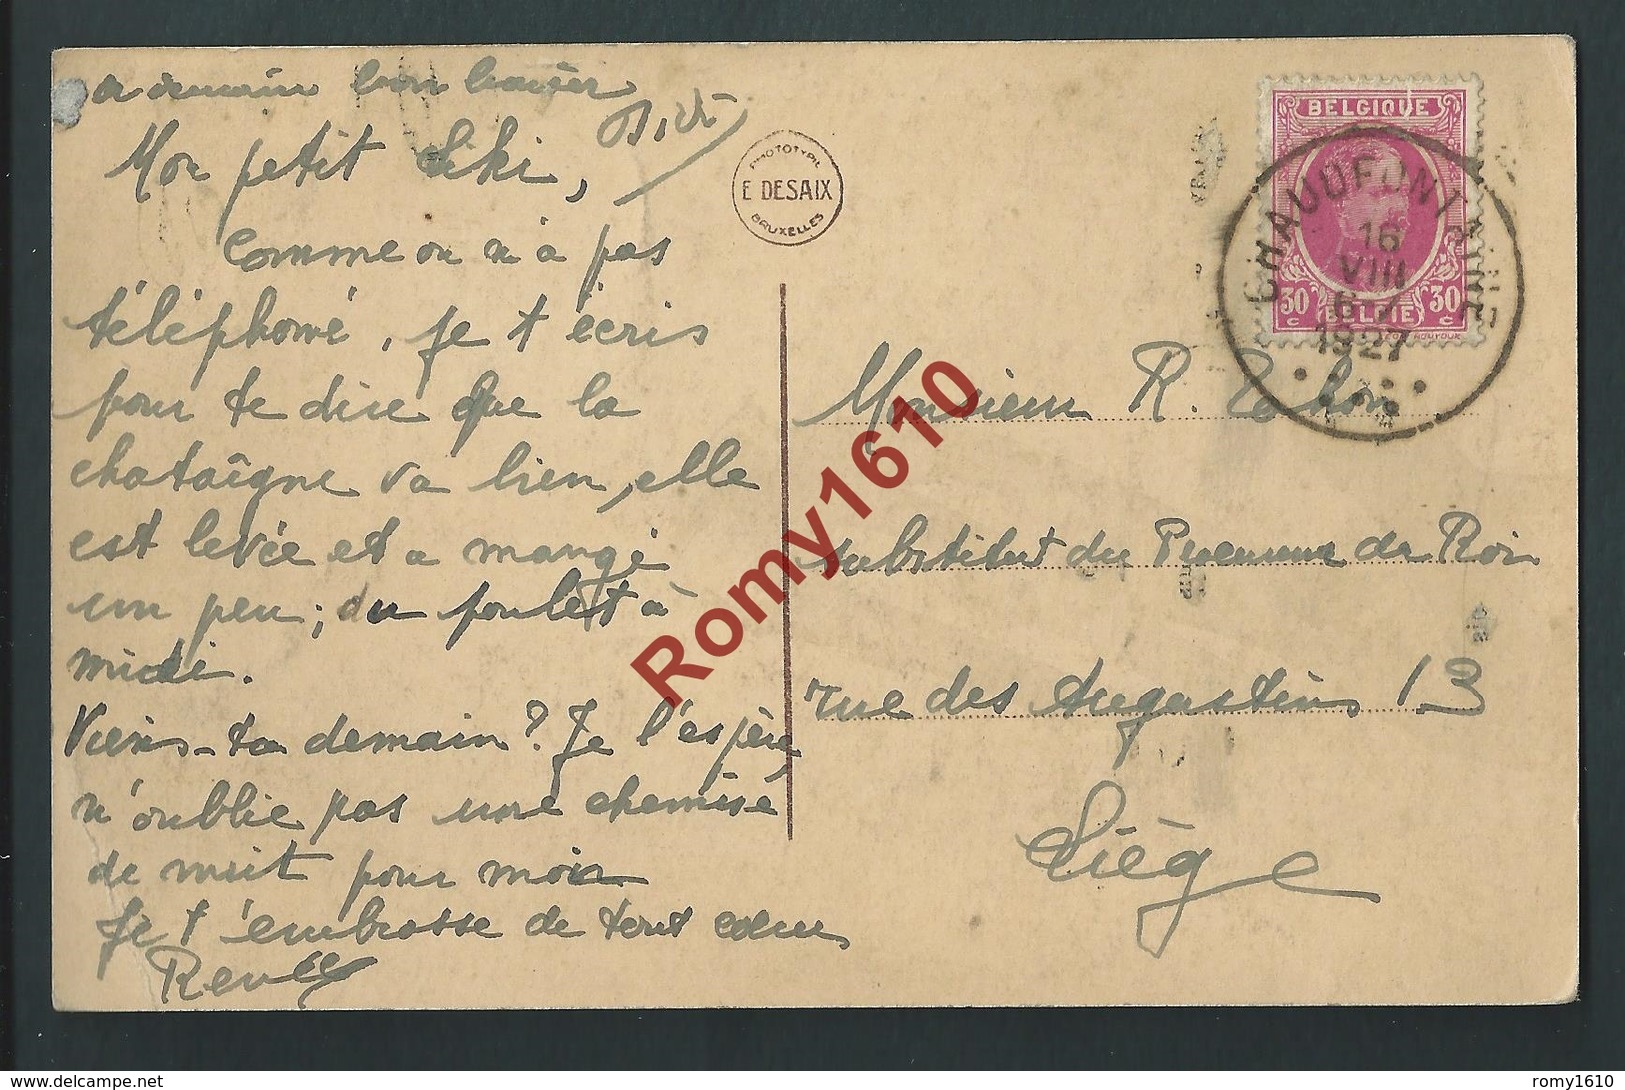 a demain bon baiser
Mon petit Kiki,
Comme on n'a pas
téléphoné, je t'écris
pour te dire que la
chataîgne va bien, elle
est levée et a mangé
un peu; du poulet à
midi.
Viens-tu demain? Je l'espère,
n'oublie pas une chemise
de nuit pour moi
Je t'embrasse de tout coeur
Renée
PHOTOTYPIE
E DESAIX
BRUXELLES
BELGIQUE
30 c BELGIE 30 c
CHAUDFONTAINE
16
VIII
6-7
1927
Monsieur R.
substitut du Procureur du Roi
rue des Augustins 13
Liège
Romy1610
http://www.delcampe.net
romy1610